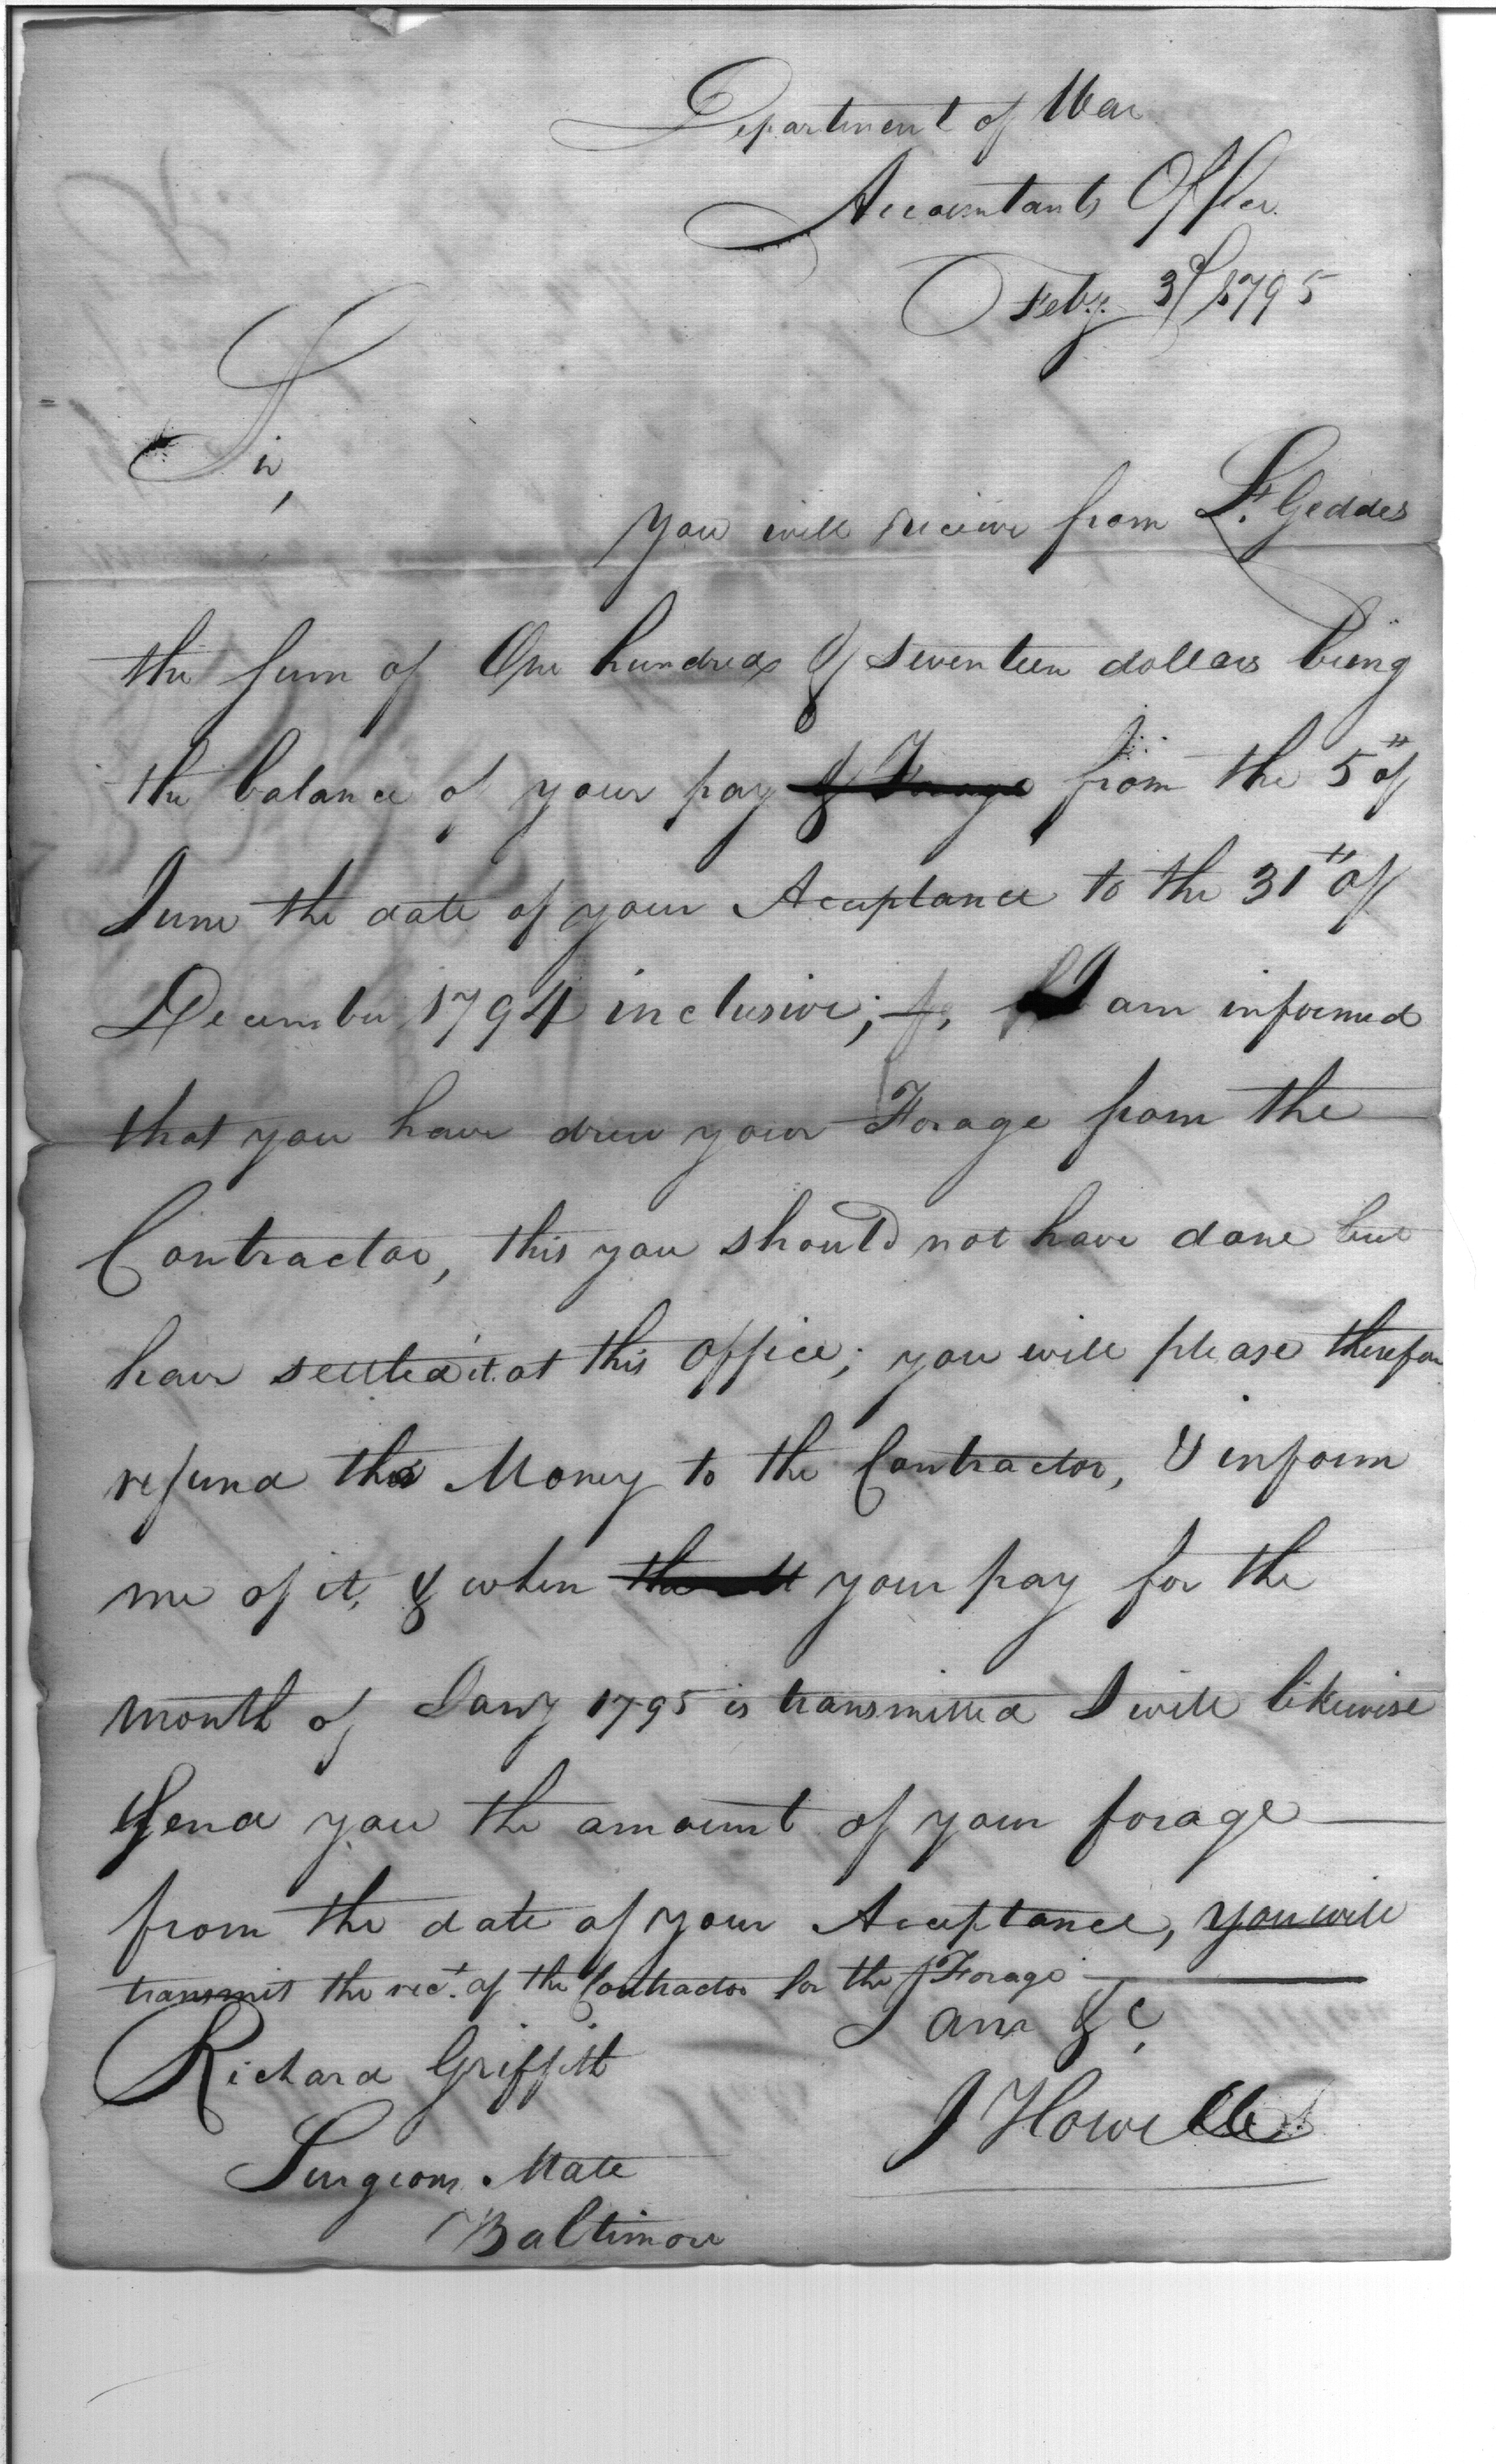 Department of War
Accountants Office
Feby. 3d 1795
Sir,
you will receive from Geddes
the sum of One hundred & seventeen dollars being
the balance of your pay & Forage from the 5th of
June the date of your Acceptance to the 31th of
December 1794 inclusive; I am informed
that you have drew your Forage from the
Contractor, this you should not have done but
have settled it at this Office; you will please therefore
refund the Money to the Contractor, & inform
me of it, & when your pay for the
month of Jany 1795 is transmitted I will likewise
send you the amount of your forage
from the date of your Acceptance, you will
transmit the rect. of the Contractor for the Forage
I am &c,
Richard Griffith
J Howell
Surgeons Mate
Baltimore